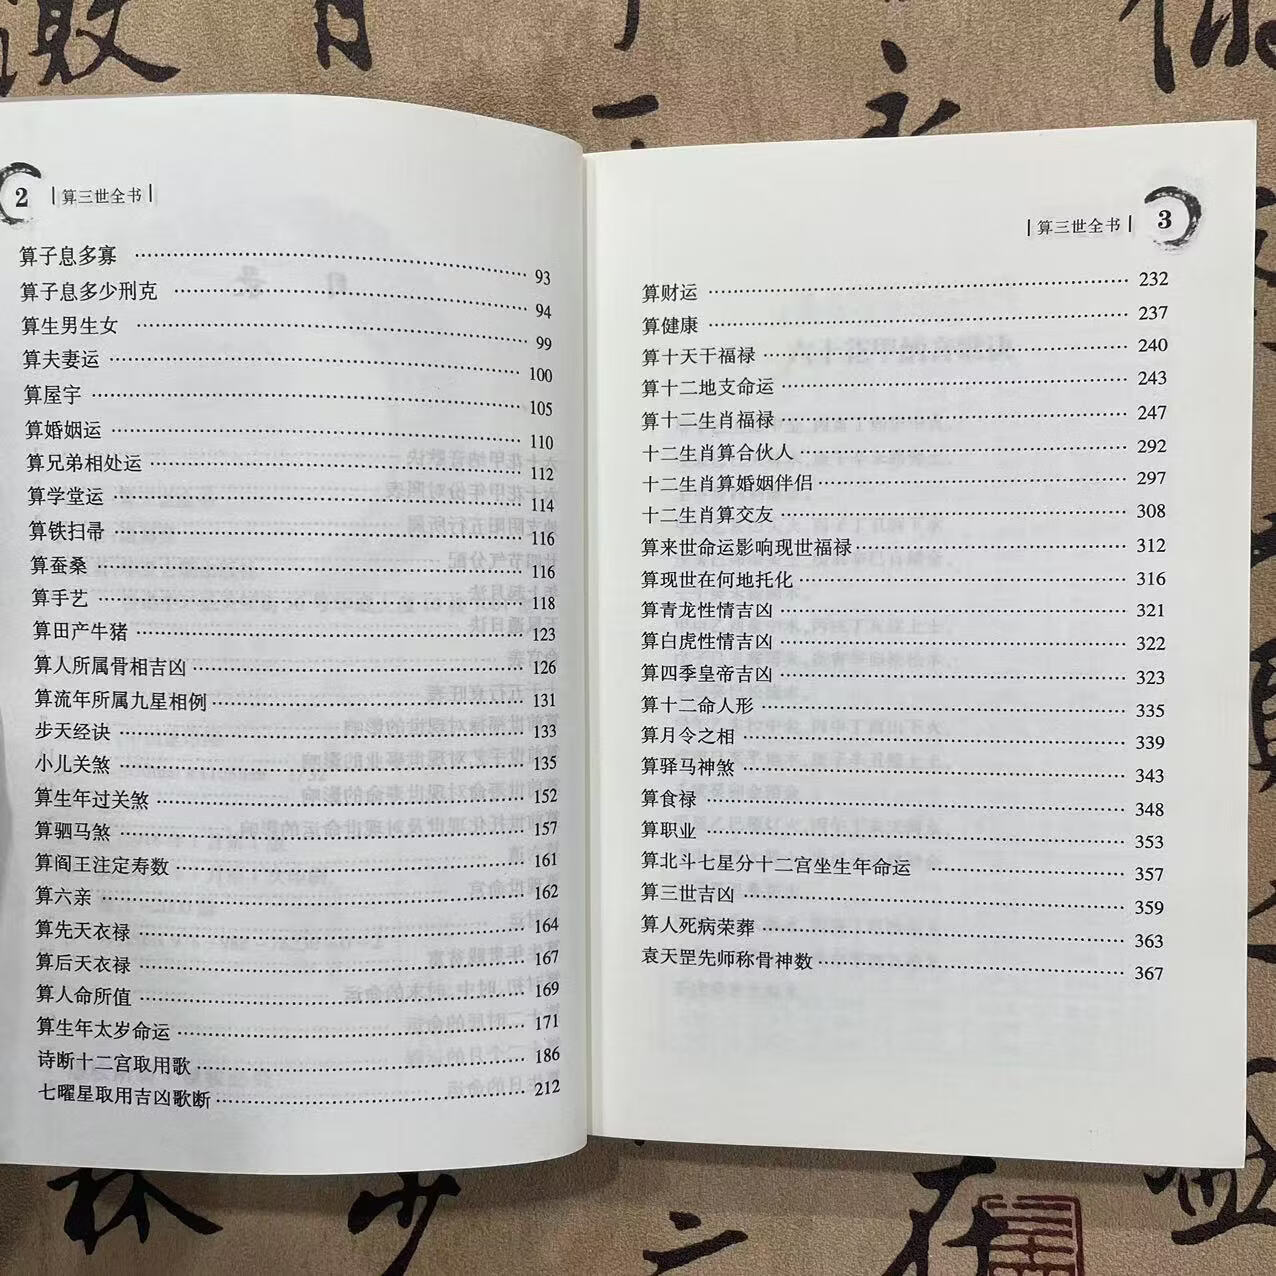 2 算三世全书
算子息多寡 93
算子息多少刑克 94
算生男生女 99
算夫妻运 100
算屋宇 105
算婚姻运 110
算兄弟相处运 112
算学堂运 114
算铁扫帚 116
算蚕桑 116
算手艺 118
算田产牛猪 123
算人所属骨相吉凶 126
算流年所属九星相例 131
步天经诀 133
小儿关煞 135
算生年过关煞 152
算驷马煞 157
算阎王注定寿数 161
算六亲 162
算先天衣禄 164
算后天衣禄 167
算人命所值 169
算生年太岁命运 171
诗断十二宫取用歌 186
七曜星取用吉凶歌断 212
算三世全书 3
算财运 232
算健康 237
算十天干福禄 240
算十二地支命运 243
算十二生肖福禄 247
十二生肖算合伙人 292
十二生肖算婚姻伴侣 297
十二生肖算交友 308
算来世命运影响现世福禄 312
算现世在何地托化 316
算青龙性情吉凶 321
算白虎性情吉凶 322
算四季皇帝吉凶 323
算十二命人形 335
算月令之相 339
算驿马神煞 343
算食禄 348
算职业 353
算北斗七星分十二宫坐生年命运 357
算三世吉凶 359
算人死病荣葬 363
袁天罡先师称骨神数 367